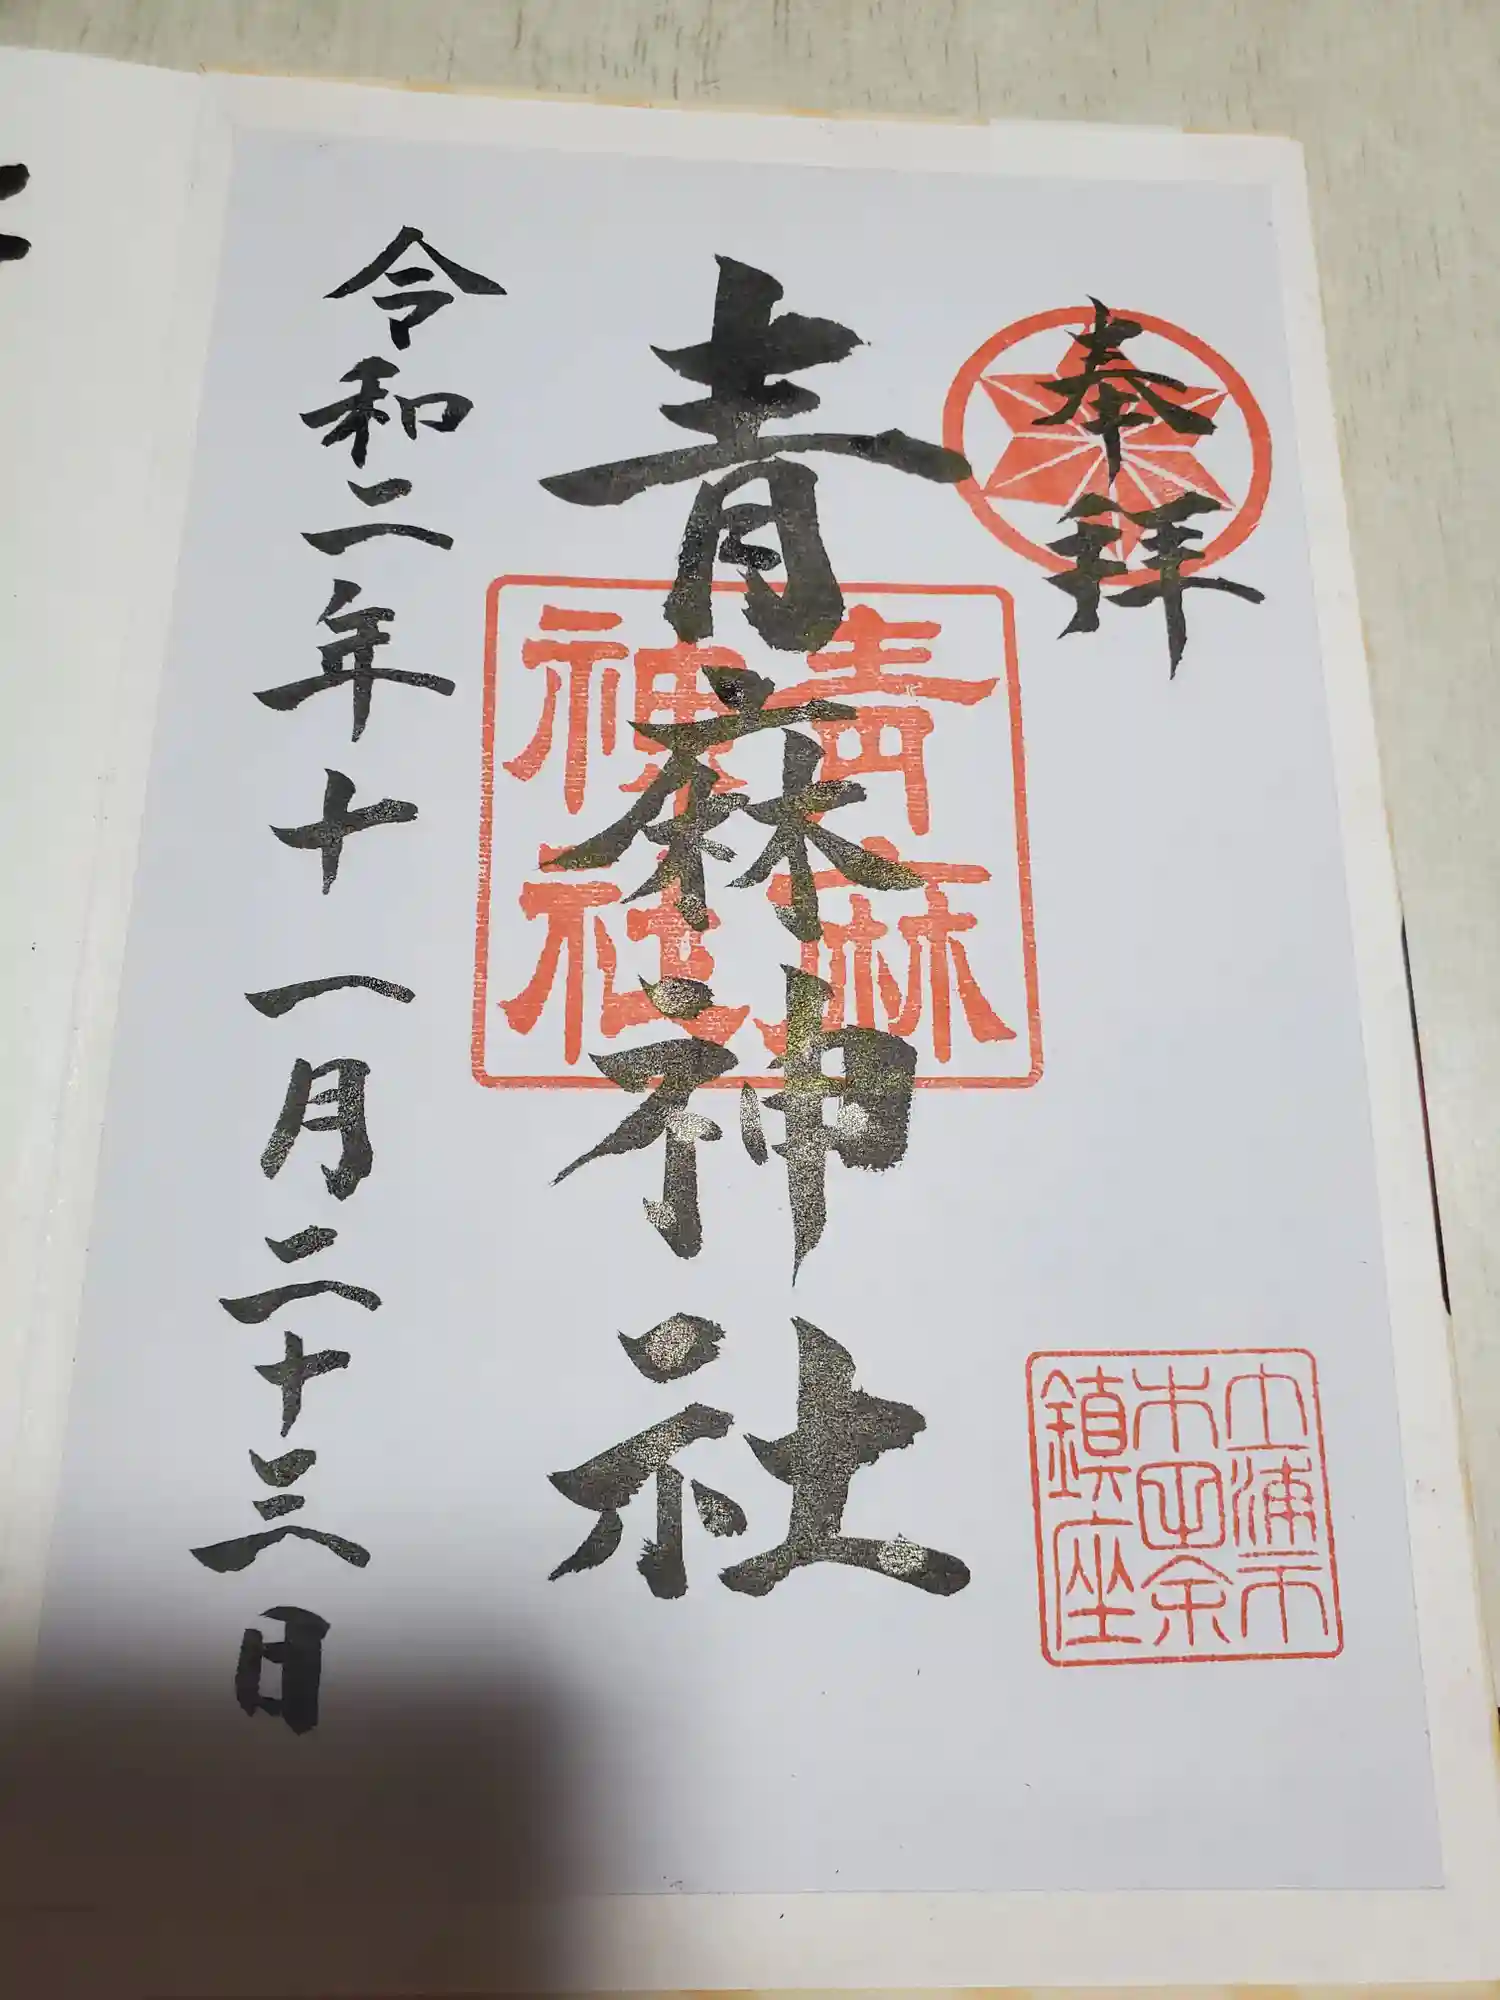 奉拝
土浦市
木田余
鎮座
青麻神社
青麻
神社
令和二年十一月二十三日